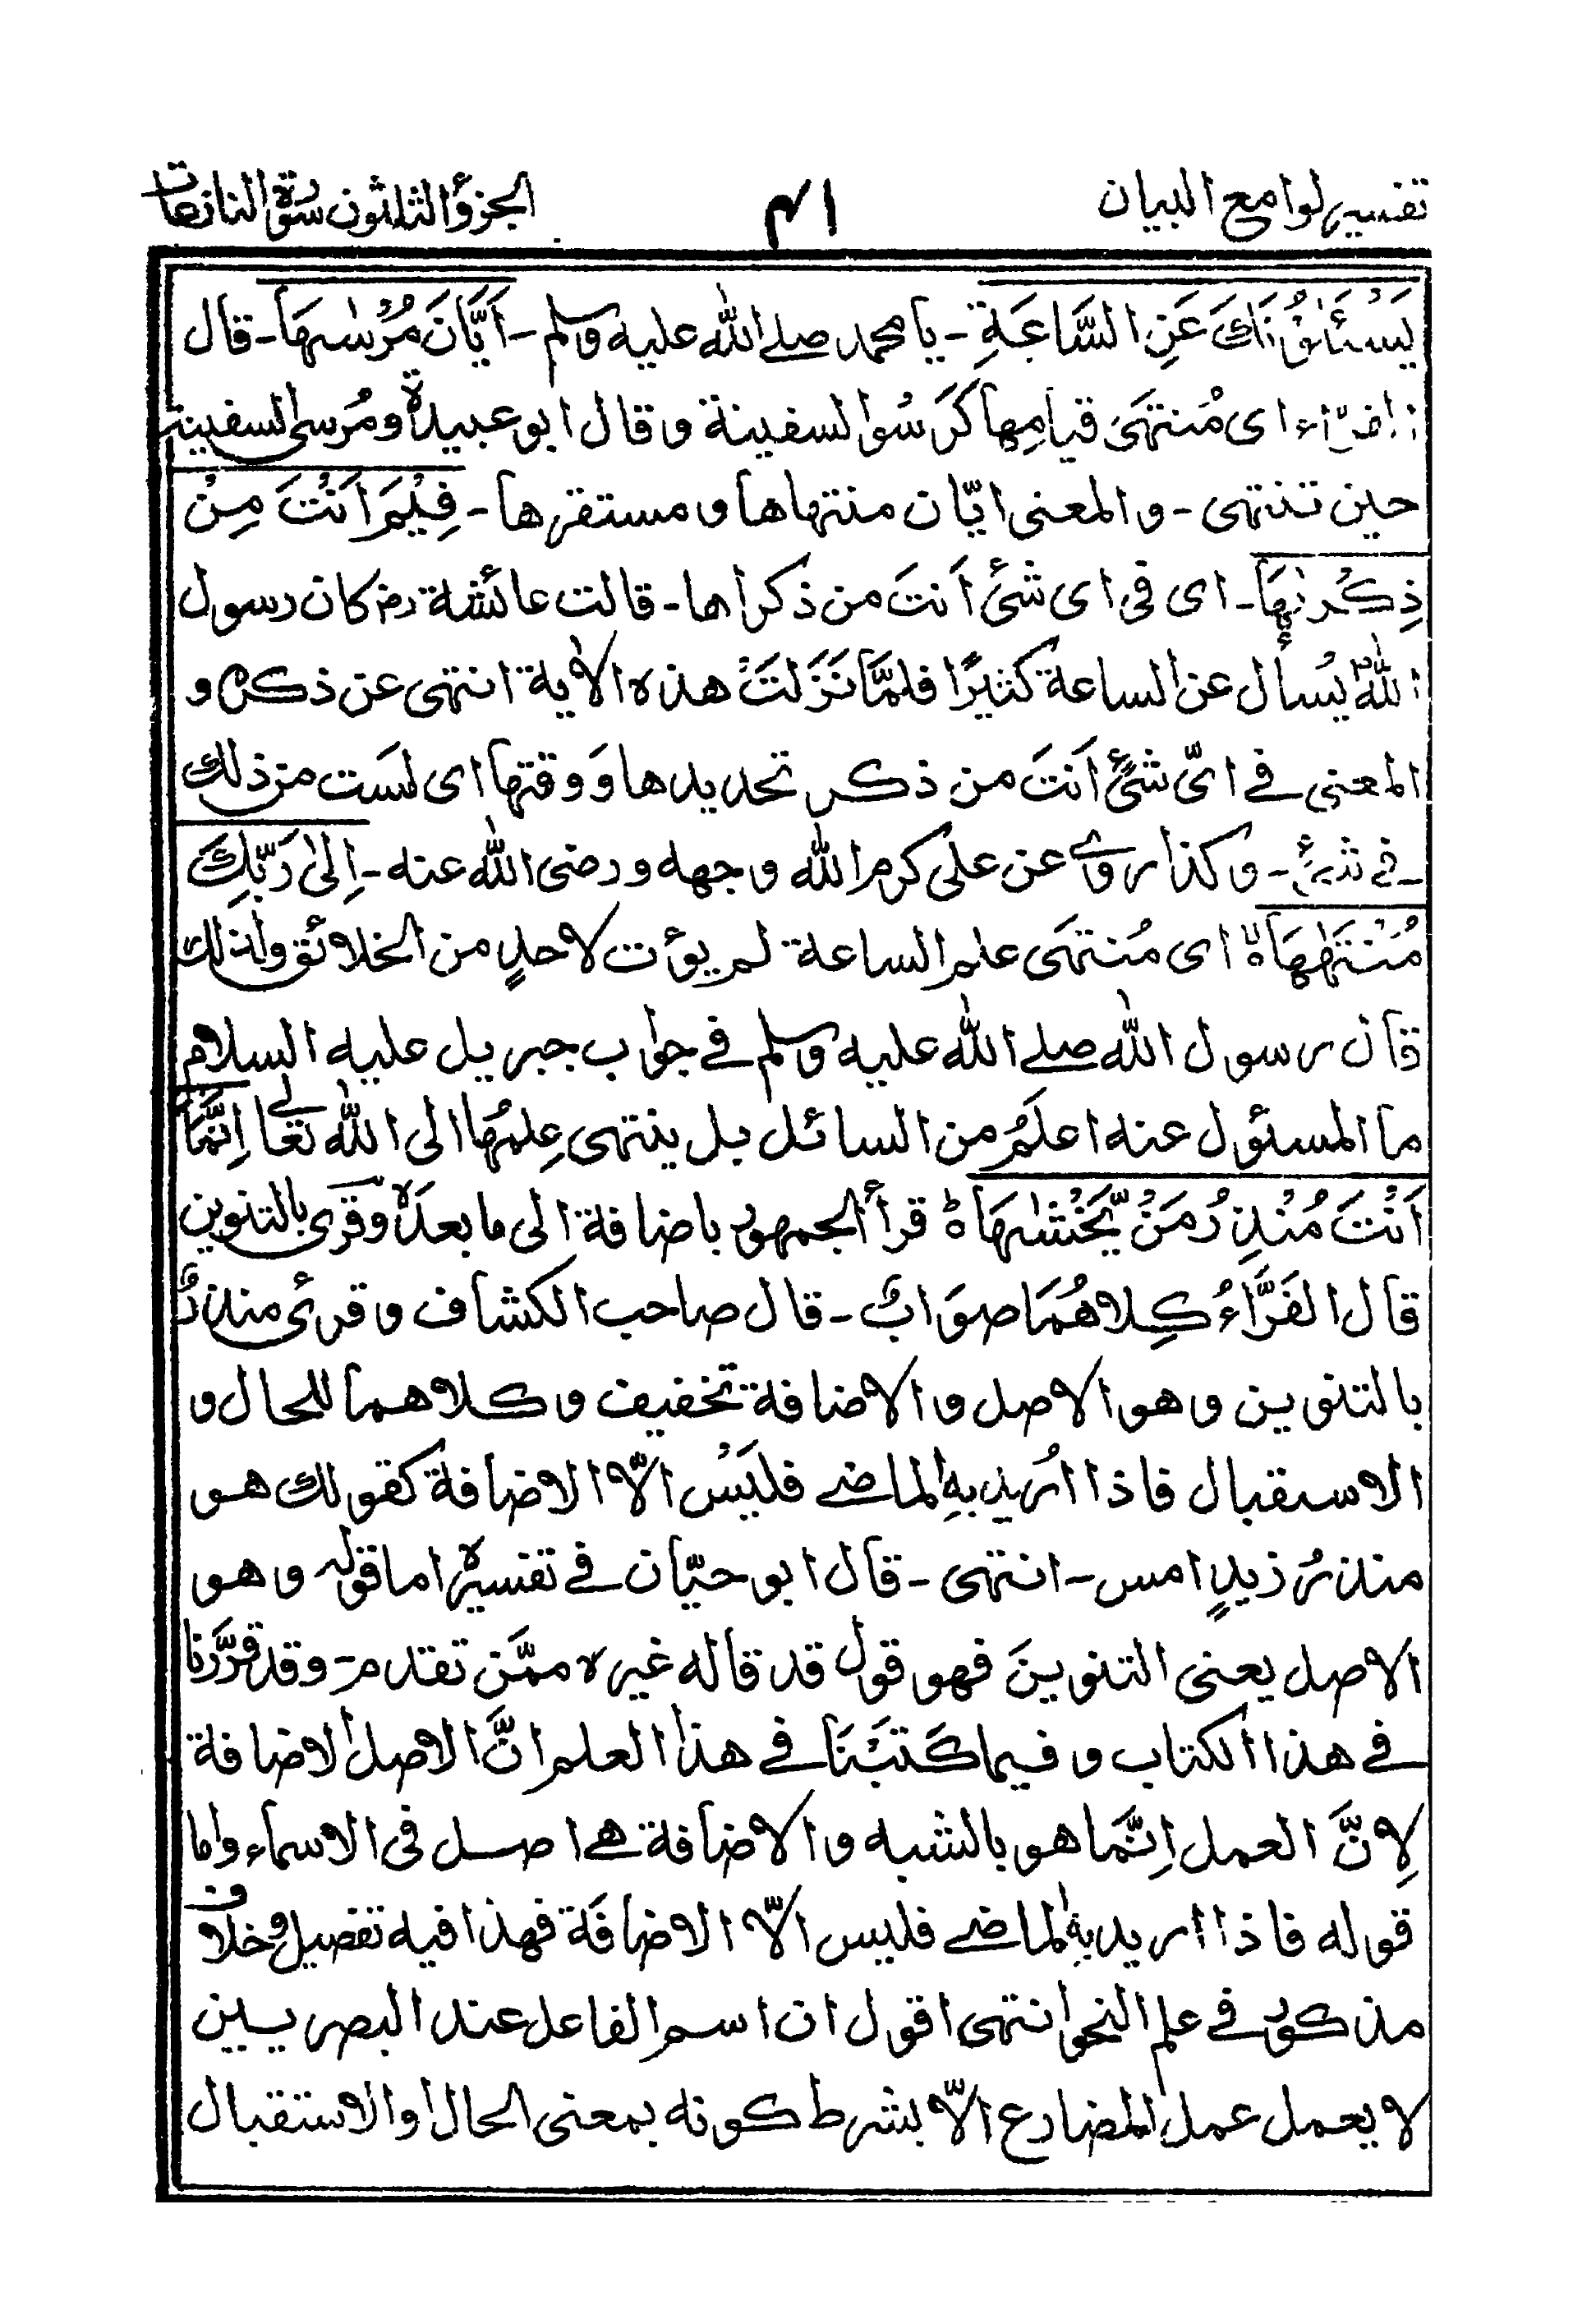 تفسير لوامع البيان
٤١
الجزؤ الثلثون سورة النازعات
يَسْئَلُوْنَكَ عَنِ السَّاعَةِ - يا محمد صلے الله عليه وسلم - اَيَّانَ مُرْسٰىهَا - قال
الفرّاء اى مُنتهَى قيامِها كَرَسُو السفينة وقال ابو عبيدة ومُرسى السفينة
حين تنتهى - والمعنى ايّان منتهاها ومستقرها - فِيْمَ اَنْتَ مِنْ
ذِكْرٰىهَا - اى فى اى شئ اَنتَ من ذكراها - قالت عائشة رض كان رسول
اللهؐ يُسأل عن الساعة كثيرًا فلمَّا نَزَلَتْ هذه الاٰية انتهى عن ذكره و
المعنى فے اىّ شئٍ اَنتَ من ذكر تحديدها وَوقتها اى لستَ من ذلك
فى شئ - وكذا روے عن على كرم الله وجهه ورضى الله عنه - اِلىٰ رَبِّكَ
مُنْتَهٰهَاۤ اى مُنتهَى علم الساعة لم يؤت لاحدٍ من الخلائق ولذلك
قال رسول الله صلے الله عليه وسلم فے جواب جبريل عليه السلام
ما المسئول عنه اعلَمُ من السائل بل ينتهى عِلمُها الى الله تعالے اِنَّمَا
اَنْتَ مُنْذِرُ مَنْ يَّخْشٰىهَا ط قرأ الجمهور باضافة الى ما بعدَهٗ وقرى بالتنوين
قال الفَرَّاءُ كِلاهُمَا صوَابٌ - قال صاحب الكشاف وقرئ منذرٌ
بالتنوين وهو الاصل والاضافة تخفيف وكلاهما للحال و
الاستقبال فاذا اُريد بهِ الماضے فليَسْ الّا الاضافة كقولك هو
منذرُ زيدٍ امس - انتهى - قال ابو حيّان فے تفسيره اما قوله وهو
الاصل يعنى التنوينَ فهو قول قد قاله غيره ممَّن تقدم - وقد قرَّرنا
فے هذا الكتاب وفيما كَتَبْنَا فے هذا العلم انَّ الاصل الاضافة
لِانَّ العمل اِنَّما هو بالشبه والاضافة هے اصل فى الاسماء واما
قوله فاذا اريد بهِ الماضے فليس الّا الاضافَة فهذا فيه تفصيل وخلاف
مذكور فے علم النحو انتهى اقول ان اسم الفاعل عند البصريين
لا يعمل عمل المضارع الّا بشرط كونه بمعنى الحال او الاستقبال